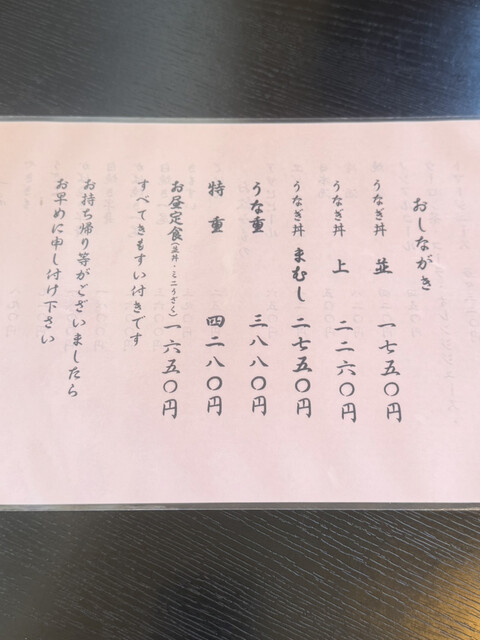 おしながき
うなぎ丼 並 一七五〇円
うなぎ丼 上 二二六〇円
うなぎ丼 まむし 二七五〇円
うな重 三八八〇円
特重 四二八〇円
お昼定食(並丼・ミニうざく) 一六五〇円
すべてきもすい付きです
お持ち帰り等がございましたら
お早めに申し付け下さい